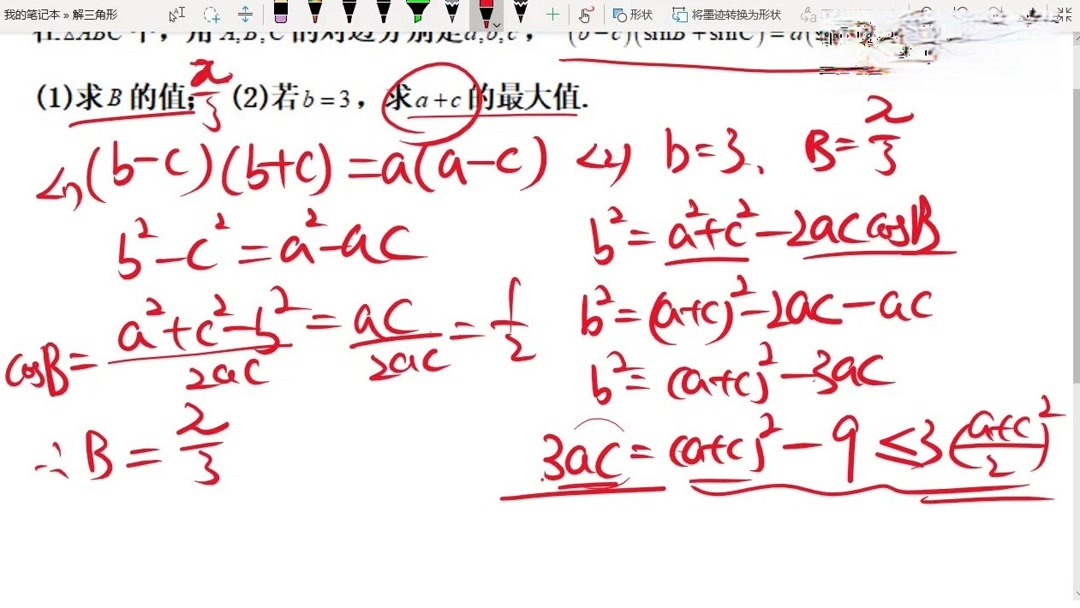 我的笔记本 » 解三角形 形状 将墨迹转换为形状
在△ABC中，角A,B,C的对边分别是a,b,c， (b−c)(sinB+sinC)=a(
(1)求B的值； π/3 (2)若b=3，求a+c的最大值.
<1> (b−c)(b+c)=a(a−c) <2> b=3、 B=π/3
b²−c²=a²−ac b²=a²+c²−2accosB
cosB=(a²+c²−b²)/2ac=ac/2ac=1/2 b²=(a+c)²−2ac−ac
b²=(a+c)²−3ac
∴B=π/3 3ac=(a+c)²−9≤3((a+c)/2)²